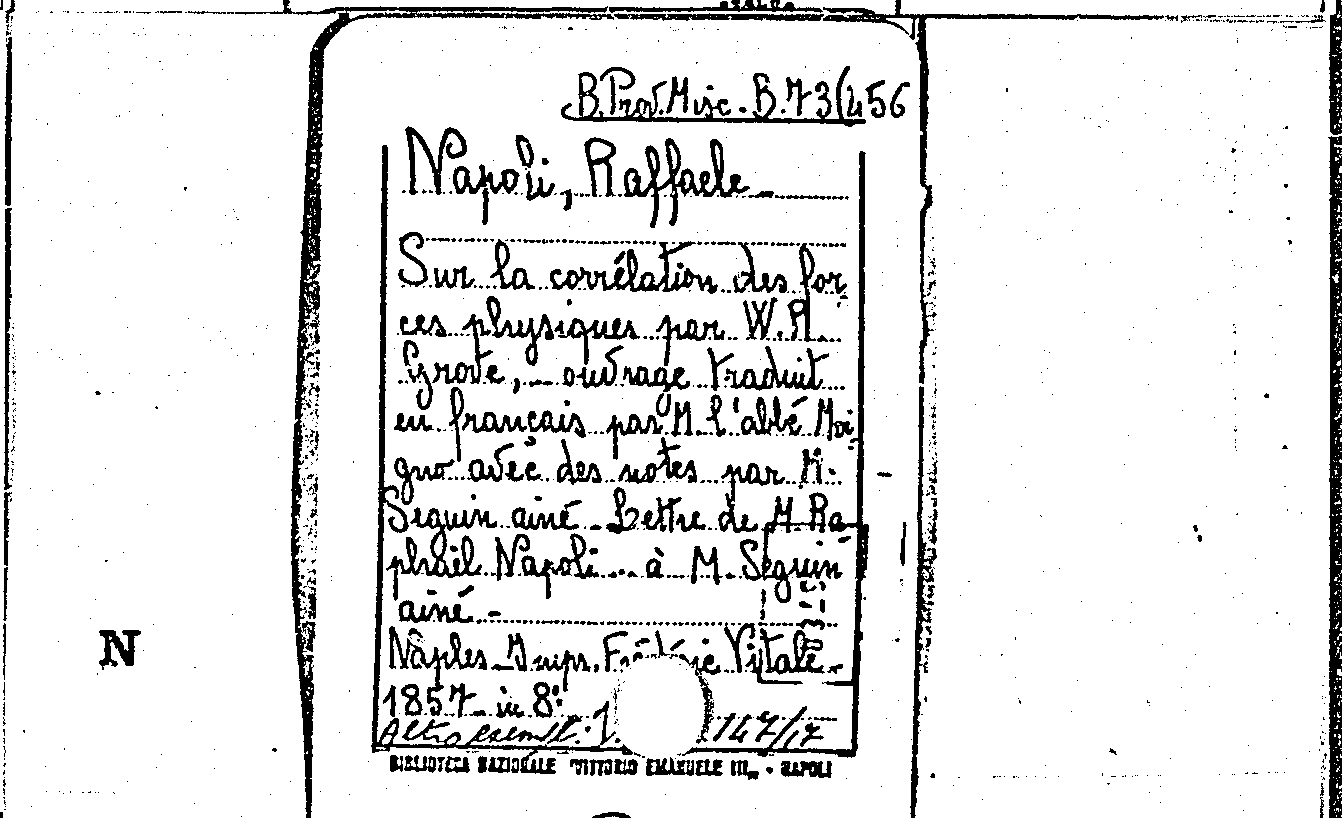 B. Prov. Misc. B. 73(456
Napoli, Raffaele
Sur la corrélation des for=
ces physiques par W.R.
Grove, ouvrage traduit
en français par M. l'abbé Moi=
gno avec des notes par M.
Seguin ainé - Lettre de M. Ra=
phaël Napoli... à M. Seguin
ainé. -
N
Naples - Imps. Frédéric Vitale -
1857 - in 8°.
Altro esempl.: 147/17
BIBLIOTECA NAZIONALE "VITTORIO EMANUELE III" - NAPOLI